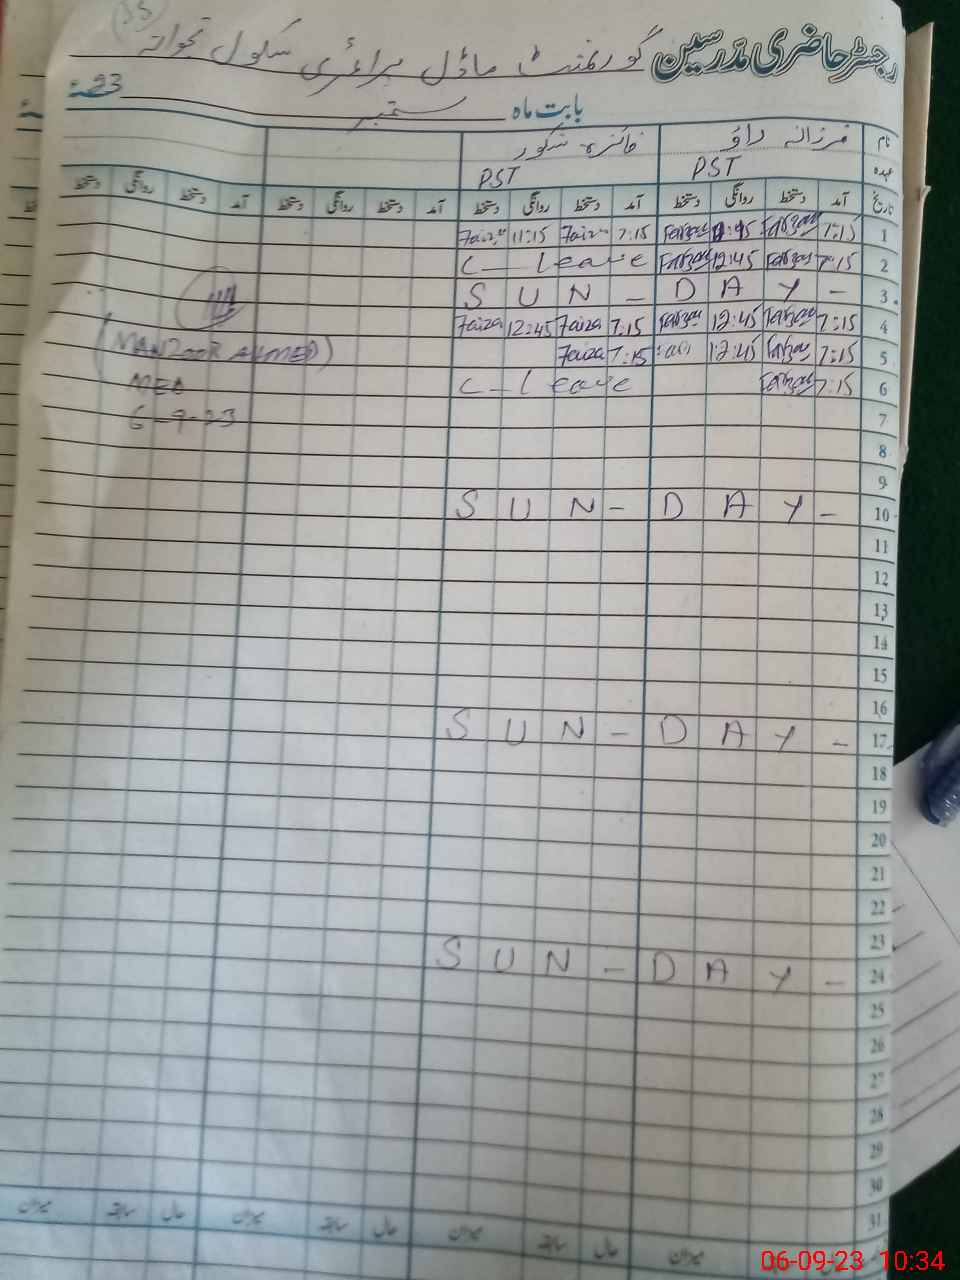 35
رجسٹر حاضری مدرسین گورنمنٹ ماڈل پرائمری سکول
بابت ماہ ستمبر 23ء
نام فرزانہ راؤ فائزہ شکور
عہدہ PST PST
تاریخ آمد دستخط روانگی دستخط آمد دستخط روانگی دستخط آمد دستخط روانگی دستخط آمد دستخط روانگی دستخط
1 7:15 Farzana Farzana 7:15 Faiza 11:15 Faiza
2 7:15 Farzana 12:45 Farzana C-Leave
3 SUN-DAY-
4 7:15 Farzana 12:45 Farzana 7:15 Faiza 12:45 Faiza
5 7:15 Farzana 12:45 7:15 Faiza
(MANZOOR AHMED)
6 7:15 Farzana C-Leave
MEA
7
6-9-23
8
9
10 SUN-DAY-
11
12
13
14
15
16
17 SUN-DAY-
18
19
20
21
22
23
24 SUN-DAY-
25
26
27
28
29
30
31
میزان حال سابقہ میزان حال سابقہ میزان حال سابقہ میزان
06-09-23 10:34